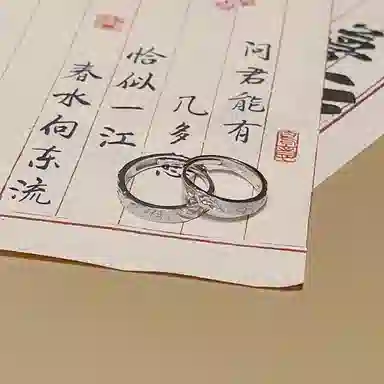 问君能有
几多愁
恰似一江
春水向东流